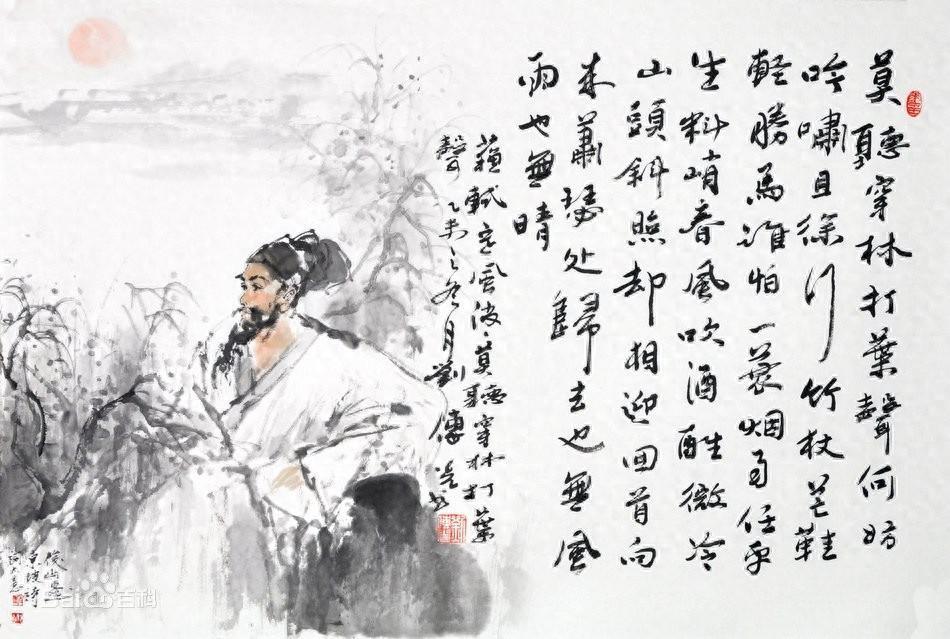 莫聽穿林打葉聲何妨
吟嘯且徐行竹杖芒鞋
輕勝馬誰怕一蓑烟雨任平
生料峭春風吹酒醒微冷
山頭斜照却相迎回首向
来蕭瑟处歸去也無風
雨也無晴
蘇軾定風波莫聽穿林打葉
聲乙未之冬月劉傳书
俊山画
東坡詩
Baidu百科